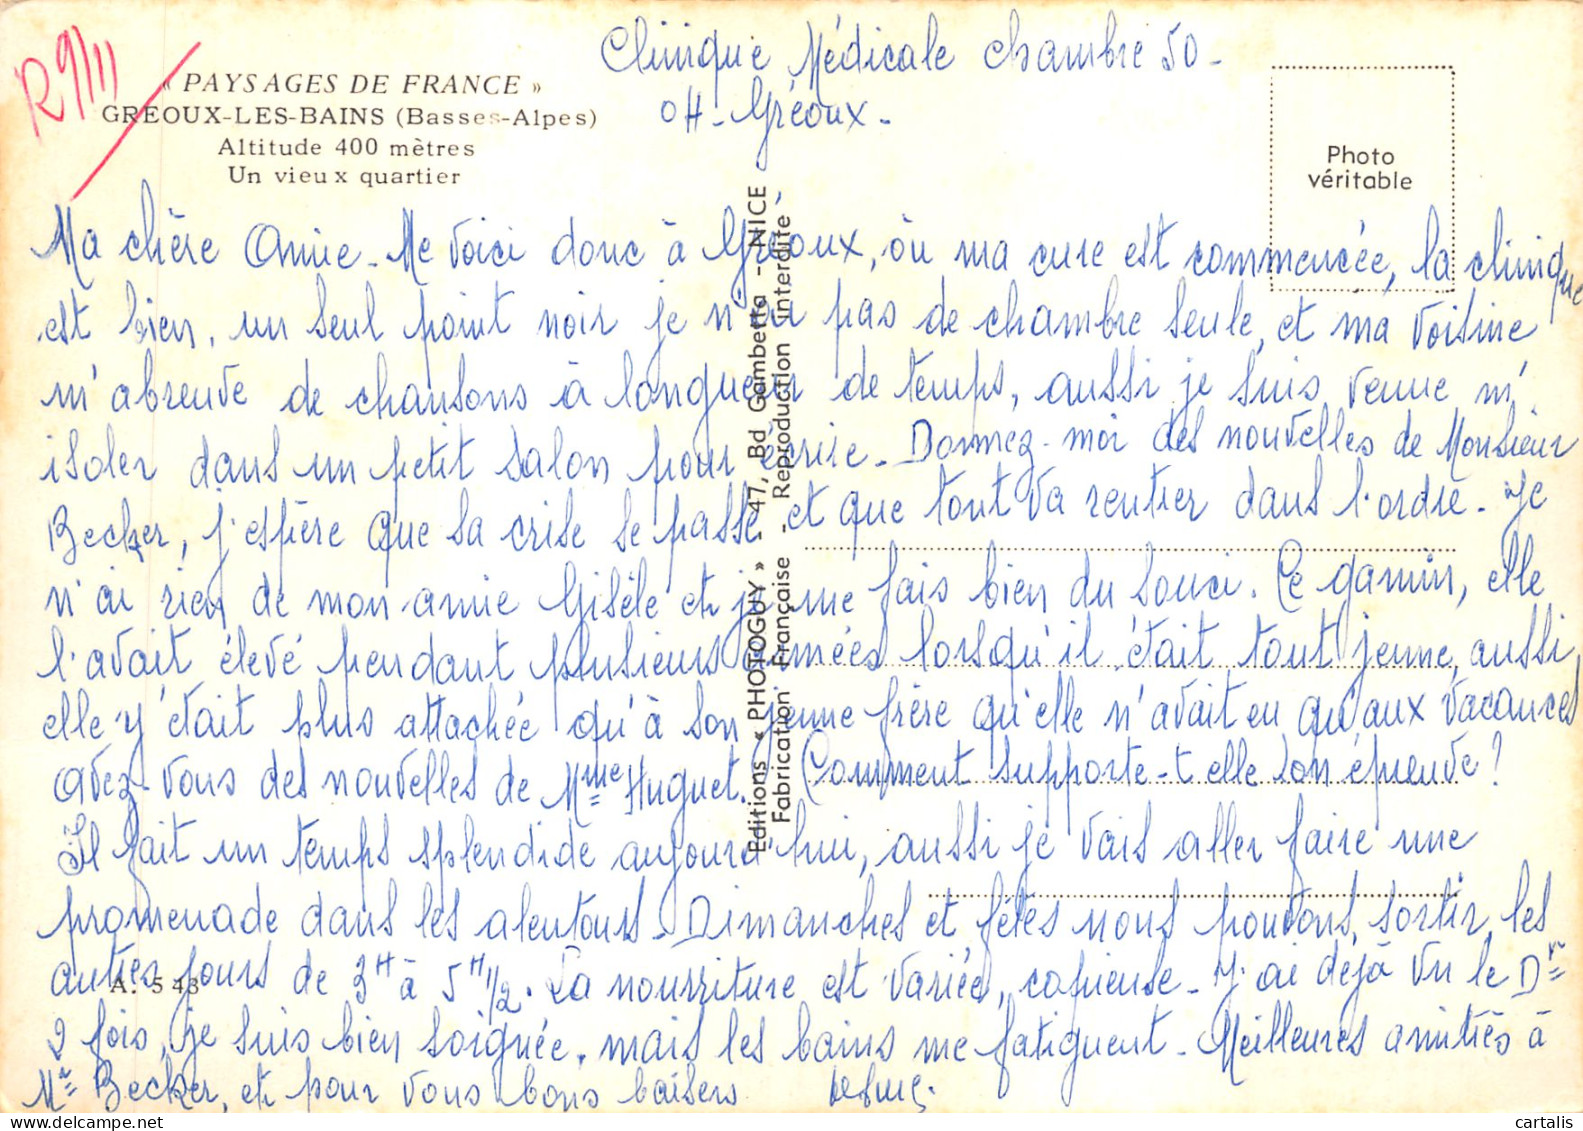 R 9/11
« PAYSAGES DE FRANCE »
GREOUX-LES-BAINS (Basses-Alpes)
Altitude 400 mètres
Un vieux quartier
Clinique Médicale chambre 50 -
04 - Gréoux -
Photo
véritable
Ma chère Amie - Me voici donc à Gréoux, où ma cure est commencée, la clinique
est bien, un seul point noir je n'ai pas de chambre seule, et ma voisine
m'abreuve de chansons à longueur de temps, aussi je suis venue m'
isoler dans un petit salon pour écrire - Donnez-moi des nouvelles de Monsieur
Becker, j'espère que sa crise se passe et que tout va rentrer dans l'ordre - Je
n'ai rien de mon amie Gisèle et je me fais bien du souci. Ce gamin, elle
l'avait élevé pendant plusieurs années lorsqu'il était tout jeune, aussi,
elle y était plus attachée qu'à son jeune frère qu'elle n'avait eu qu'aux vacances
Avez-vous des nouvelles de Mme Huguet. Comment supporte-t elle son épreuve ?
Il fait un temps splendide aujourd'hui, aussi je vais aller faire une
promenade dans les alentours - Dimanches et fêtes nous pouvons sortir, les
autres jours de 3H à 5H1/2. La nourriture est variée, copieuse - J'ai déjà vu le Dr
2 fois, je suis bien soignée, mais les bains me fatiguent - Meilleures amitiés à
Mr Becker, et pour vous bons baisers
A. 543
Editions « PHOTOGUY » - 47, Bd Gambetta - NICE
Fabrication Française - Reproduction interdite
cartalis